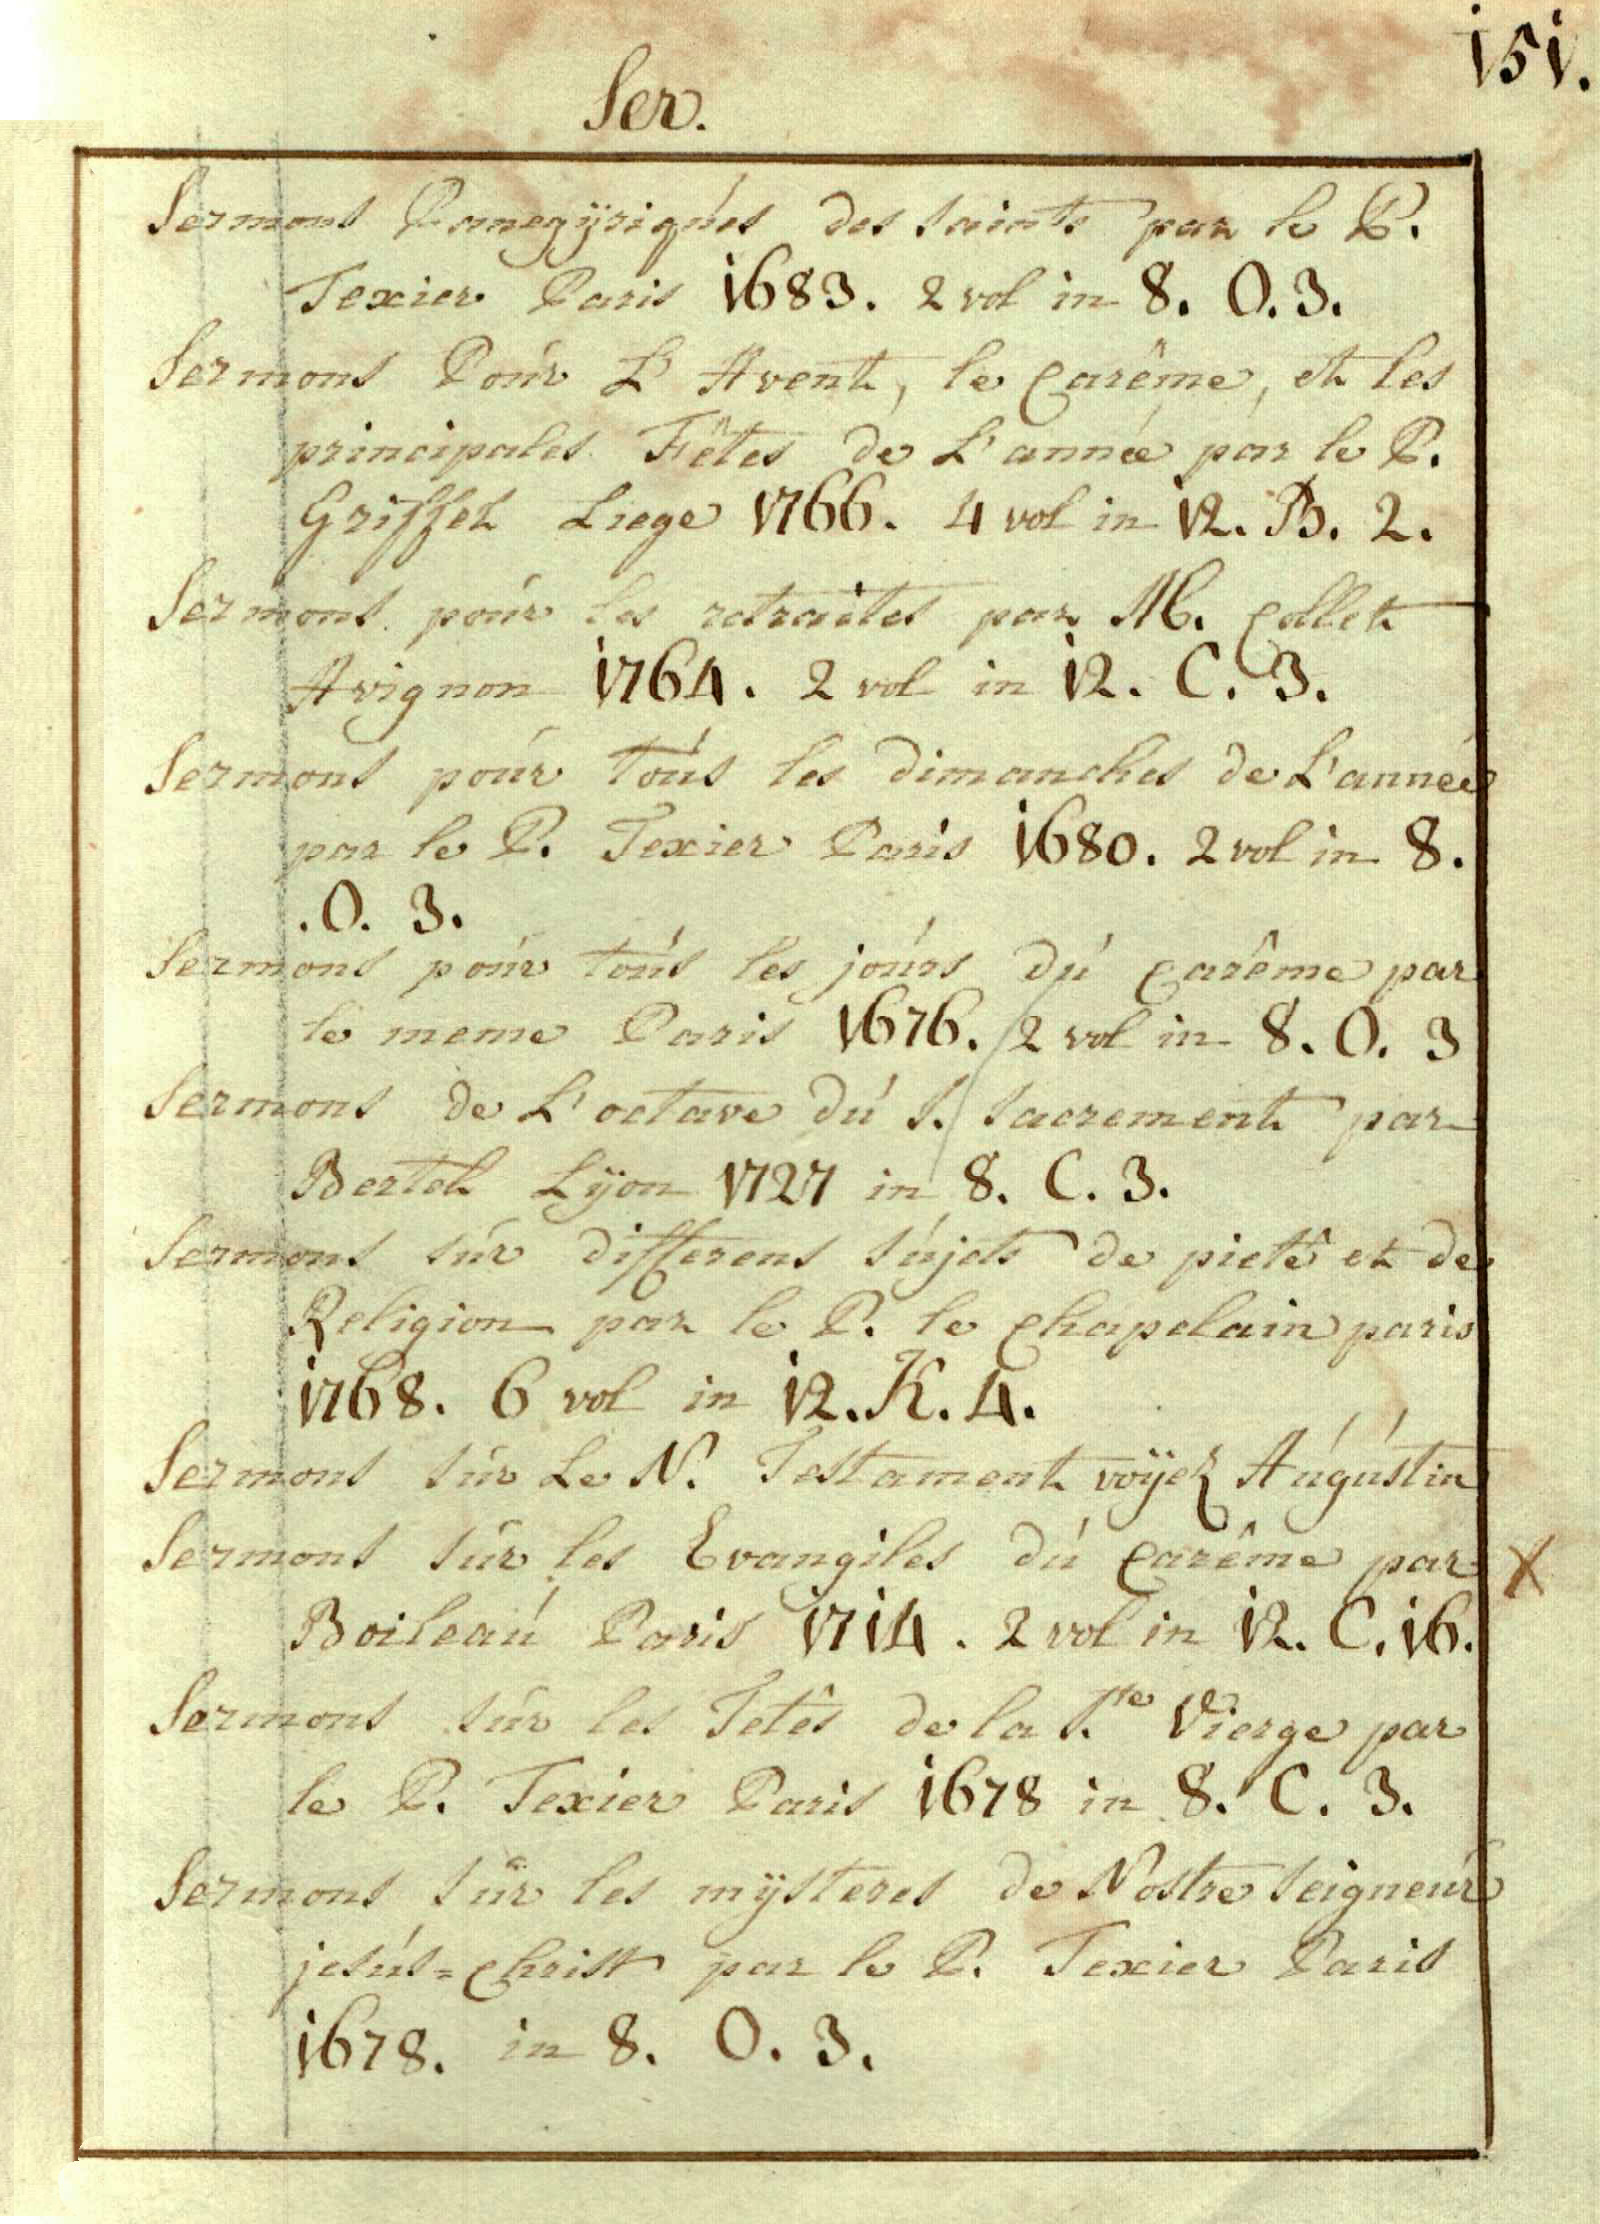 151.
Ser.
Sermons Panegÿriques des saints par le P.
Texier Paris 1683. 2 vol in 8. O. 3.
Sermons Pour L'Avent, le Carême, et les
principales Fêtes de L'année par le P.
Griffet Liege 1766. 4 vol in 12. B. 2.
Sermons pour les retraites par M. Collet
Avignon 1764. 2 vol in 12. C. 3.
Sermons pour tous les dimanches de L'année
par le P. Texier Paris 1680. 2 vol in 8.
.O. 3.
Sermons pour tous les jours du Carême par
le meme Paris 1676. 2 vol in 8. O. 3
Sermons de L'octave du S. Sacrement par
Bertet Lÿon 1727 in 8. C. 3.
Sermons sur differens sujets de pieté et de
Religion par le P. le Chapelain paris
1768. 6 vol in 12. K. 4.
Sermons sur Le N. Testament voÿez Augustin
Sermons sur les Evangiles du Carême par X
Boileau Paris 1714. 2 vol in 12. C. 16.
Sermons sur les Fetês de la S.te Vierge par
le P. Texier Paris 1678 in 8. C. 3.
Sermons sur les mÿsteres de Nostre Seigneur
jesus=Christ par le P. Texier Paris
1678. in 8. O. 3.